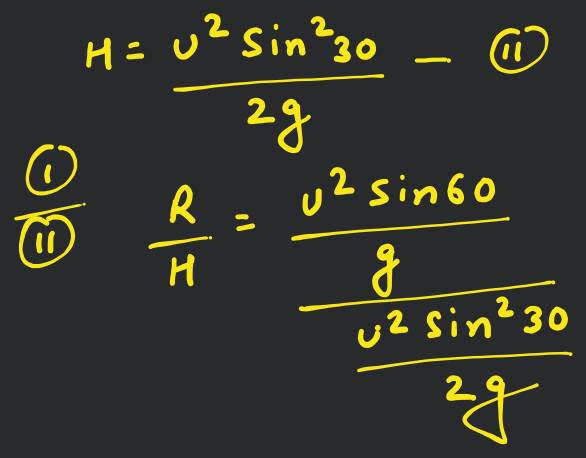 H = u² sin²30 / 2g — (II)
(I) / (II)
R / H = u² sin60 / g / u² sin²30 / 2g